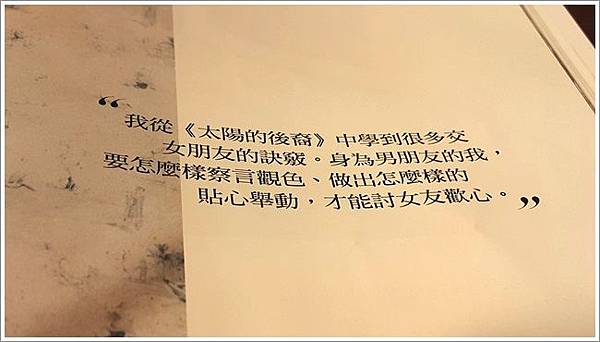 “我從《太陽的後裔》中學到很多交
女朋友的訣竅。身為男朋友的我，
要怎麼樣察言觀色、做出怎麼樣的
貼心舉動，才能討女友歡心。”